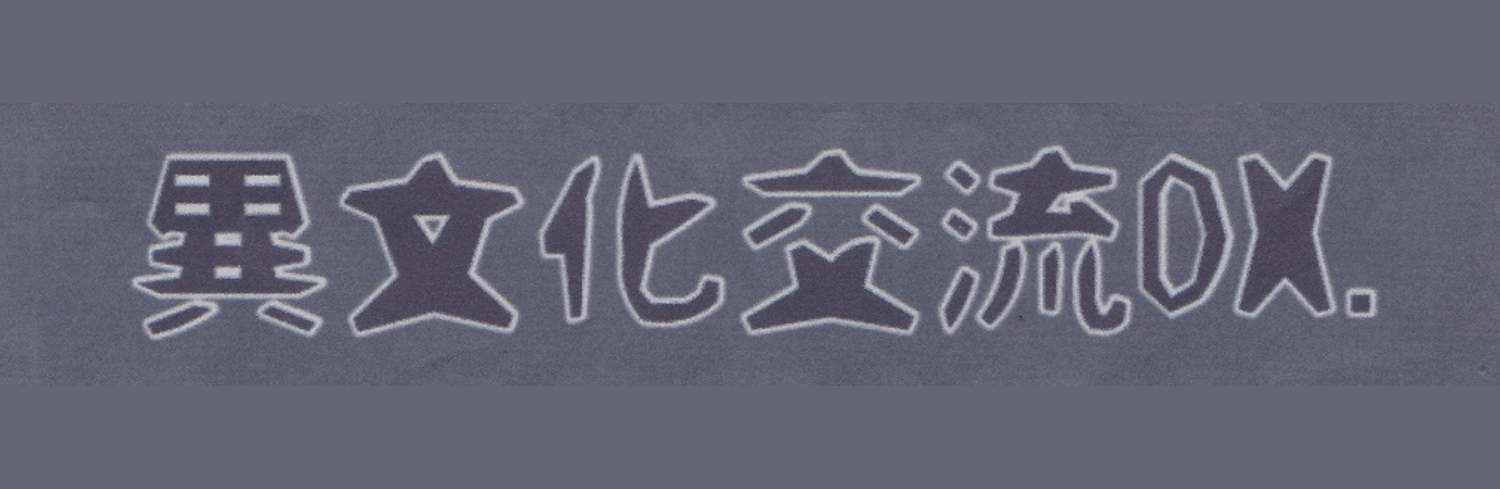 異文化交流DX.